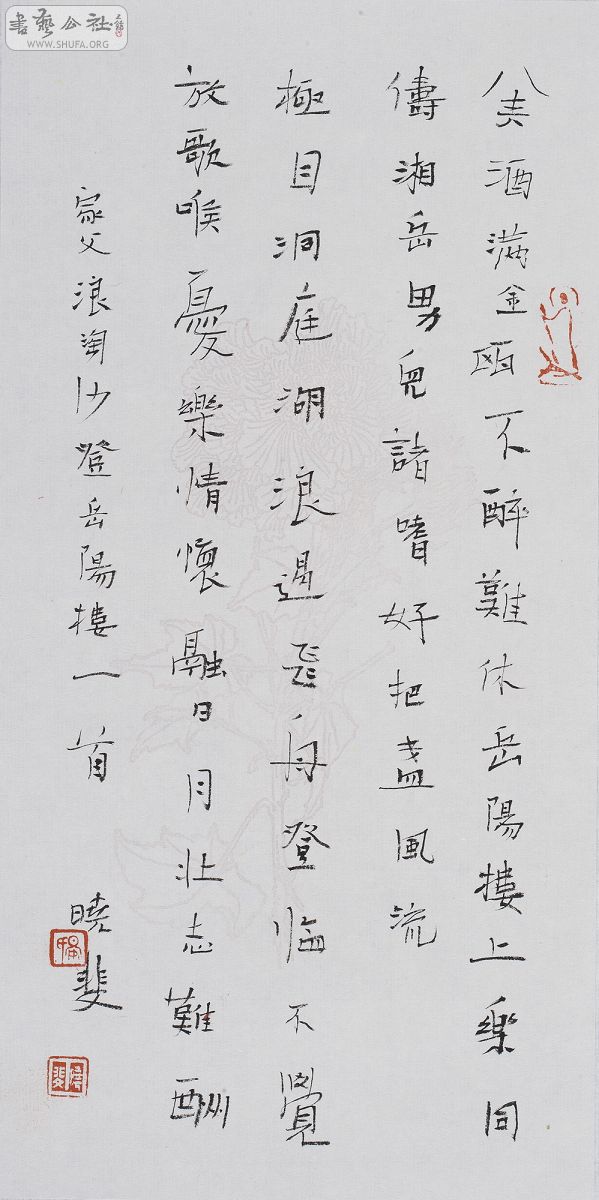 書藝公社
WWW.SHUFA.ORG
美酒滿金甌不醉難休岳陽樓上樂同
儔湘岳男兒諸嗜好把盞風流
極目洞庭湖浪遏飛舟登臨不覺
放歌喉憂樂情懷融日月壯志難酬
家父浪淘沙登岳陽樓一首
曉斐